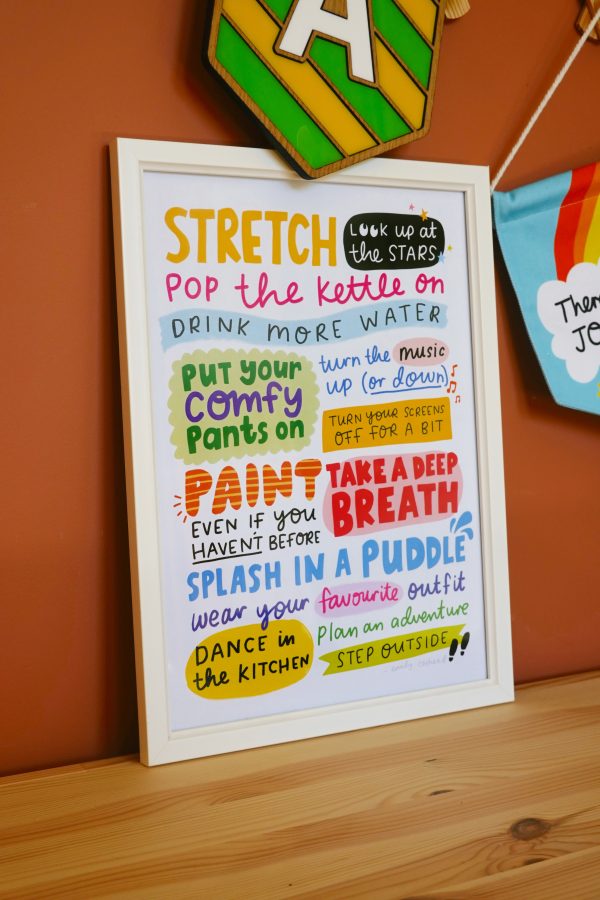 A
STRETCH
LOOK up at
the STARS
POP the kettle on
DRINK MORE WATER
PUT YOUR
COMFY
Pants on
turn the music
up (or down)
TURN YOUR SCREENS
OFF FOR A BIT
PAINT
EVEN IF you
HAVEN'T BEFORE
TAKE A DEEP
BREATH
SPLASH IN A PUDDLE
wear your favourite outfit
DANCE in
the KITCHEN
Plan an adventure
STEP OUTSIDE
Ther
JO